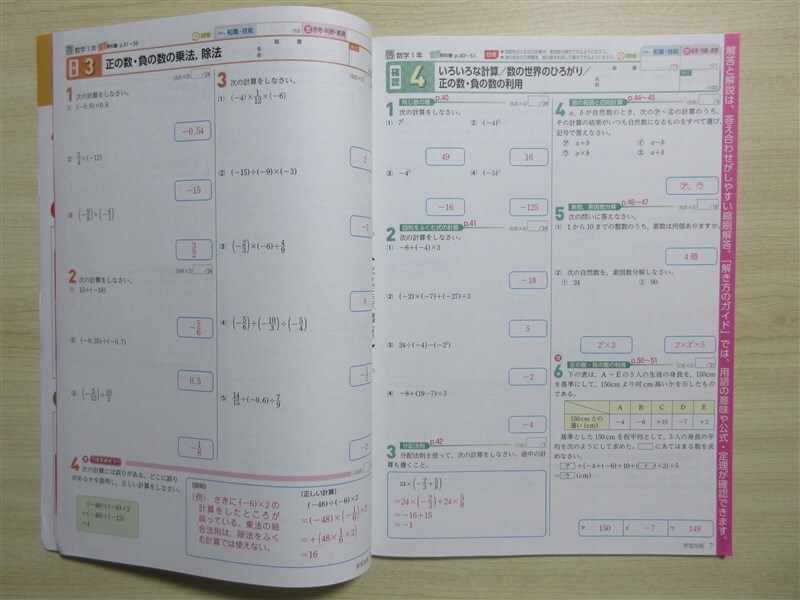 数学1年
教科書 p.31~39
知識・技能
思考・判断・表現
3 正の数・負の数の乗法,除法
1 次の計算をしなさい。
(1) (−0.9)×0.6
−0.54
② 3/4×(−12)
−15
3/2
2 次の計算をしなさい。
① 15÷(−18)
−5/6
② (−0.35)÷(−0.7)
0.5
③ (−5/12)÷10/3
−1/8
3 次の計算をしなさい。
(1) (−4)×1/12×(−6)
2
(2) (−15)÷(−9)×(−3)
(3) (−2/3)×(−6)÷4/9
(4) (−5/6)÷(−10/3)÷(−5/4)
(5) 14/15÷(−0.6)÷7/9
−2
4 次の計算には誤りがある。どこに誤り
があるかを説明し,正しい計算をしなさい。
(−48)÷(−6)×2
=(−48)÷(−12)
=4
(説明)
(例) さきに(−6)×2の
計算をしたところが
誤っている。乗法の結
合法則は,除法をふく
む計算では使えない。
(正しい計算)
(−48)÷(−6)×2
=(−48)×(−1/6)×2
=+(48×1/6×2)
=16
確認 4
数学1年
教科書 p.40~51
目標
知識・技能
思考・判断・表現
いろいろな計算/数の世界のひろがり/
正の数・負の数の利用
1 同じ数の積 p.40
次の計算をしなさい。
(1) 7²
(2) (−4)²
49
16
(3) −4²
(4) (−5)³
−16
−125
2 四則をふくむ式の計算 p.41
次の計算をしなさい。
(1) −6+(−4)×3
−18
(2) (−2)×(−7)+(−27)÷3
5
(3) 24÷(−4)−(−2²)
−2
(4) −8+(19−7)÷3
−4
3 分配法則 p.42
分配法則を使って,次の計算をしなさい。途中の計
算も書くこと。
24×(−2/3+5/8)
=24×(−2/3)+24×5/8
=−16+15
=−1
4 数の範囲と四則計算 p.44~45
a,bが自然数のとき,次の㋐~㋓の計算のうち,
その計算の結果がいつも自然数になるものをすべて選び,
記号で答えなさい。
㋐ a+b
㋑ a−b
㋒ a×b
㋓ a÷b
㋐,㋒
5 素数,素因数分解 p.46~47
次の問いに答えなさい。
(1) 1から10までの整数のうち,素数は何個ありますか。
4個
(2) 次の自然数を,素因数分解しなさい。
① 24
② 90
2³×3
2×3²×5
6 正の数・負の数の利用 p.50~51
下の表は,A~Eの5人の生徒の身長を,150cm
を基準にして,150cmより何cm高いかを示したもの
である。
A B C D E
150cmとの違い(cm) −4 −6 +10 −7 +2
基準とした150cmを仮平均として,5人の身長の平
均を次のようにして求めた。□にあてはまる数を求
めなさい。
ア+{(−4)+(−6)+10+(イ)+2}÷5
=ウ(cm)
ア 150 イ −7 ウ 149
学習の友 7
解答と解説は、答え合わせがしやすい縮刷解答。「解き方のガイド」では、用語の意味や公式・定理が確認できます。